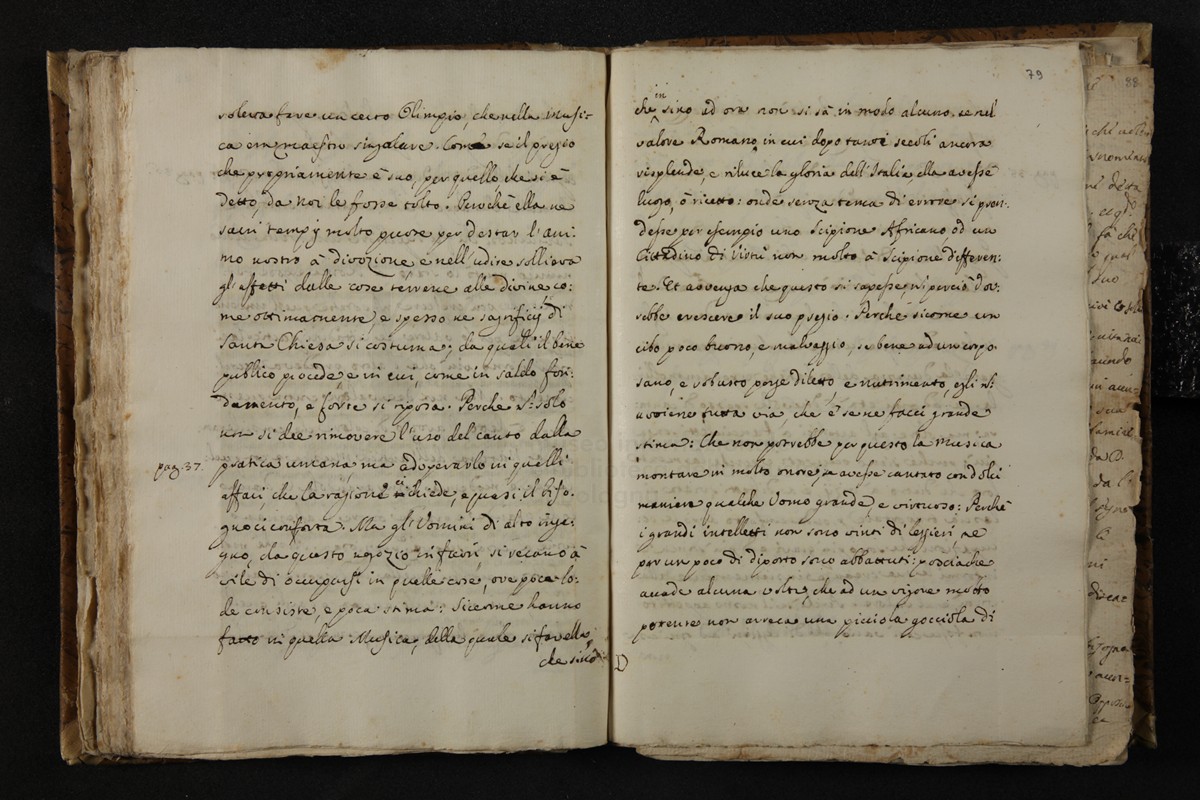 soleva fare un certo Olimpio, che nella Musi-
ca era maestro singulare. Come se il pregio
che propriamente è suo, per quello, che si è
detto, da noi le fosse tolto. Perchè ella ne
sacri tempij molto puote per destar l'ani:
mo nostro à divozione e nell'udire sollieva
gl'affetti dalle cose terrene alle divine, co:
me ottimamente, e spesso ne sagrificij di
Santa Chiesa si costuma; da quelli il bene
publico procede, e in cui, come in saldo fon:
damento, e forte si riposa. Perche nō solo
non si dee rimovere l'uso del canto dalla
pag. 37. pratica umana, ma adoperarlo in quelli
affari, che la ragione ci chiede, e quasi il biso:
gno ci conforta. Ma gli Uomini di alto inge:
gno, da questo negozio in fuori, si recano à
vile di occuparsi in quelle cose, ove poca lo:
de consiste, e poca stima: Siccome hanno
fatto in quella Musica, della quale si favella,
che sino
79
che in sino ad ora non si sà in modo alcuno, se nel
valore Romano, in cui dopo tanti secoli ancora
risplende, e riluce la gloria dell'Italia ella avesse
luogo, ò ricetto: onde senza tema di errore si pren:
desse per esempio uno Scipione Africano, od un
Cittadino di Virtù non molto à Scipione differen:
te. Et avvenga che questo si sapesse, nō perciò dov:
rebbe crescere il suo pregio. Perche sicome un
cibo poco buono, e malvaggio, se bene ad un corpo
sano, e robusto porge diletto, e nutrimento, egli nō
avviene tutta via, che è se ne facci grande
stima: Che non potrebbe per questo la Musica
montare in molto onore, se avesse cantato con dolci
maniere qualche Uomo grande, e virtuoso: Perchè
i grandi intelletti non sono vinti di leggieri, nè
per un poco di diporto sono abbattuti: posciache
accade alcuna volta, che ad un vigore molto
potente non arreca una picciola gocciola di
D
88